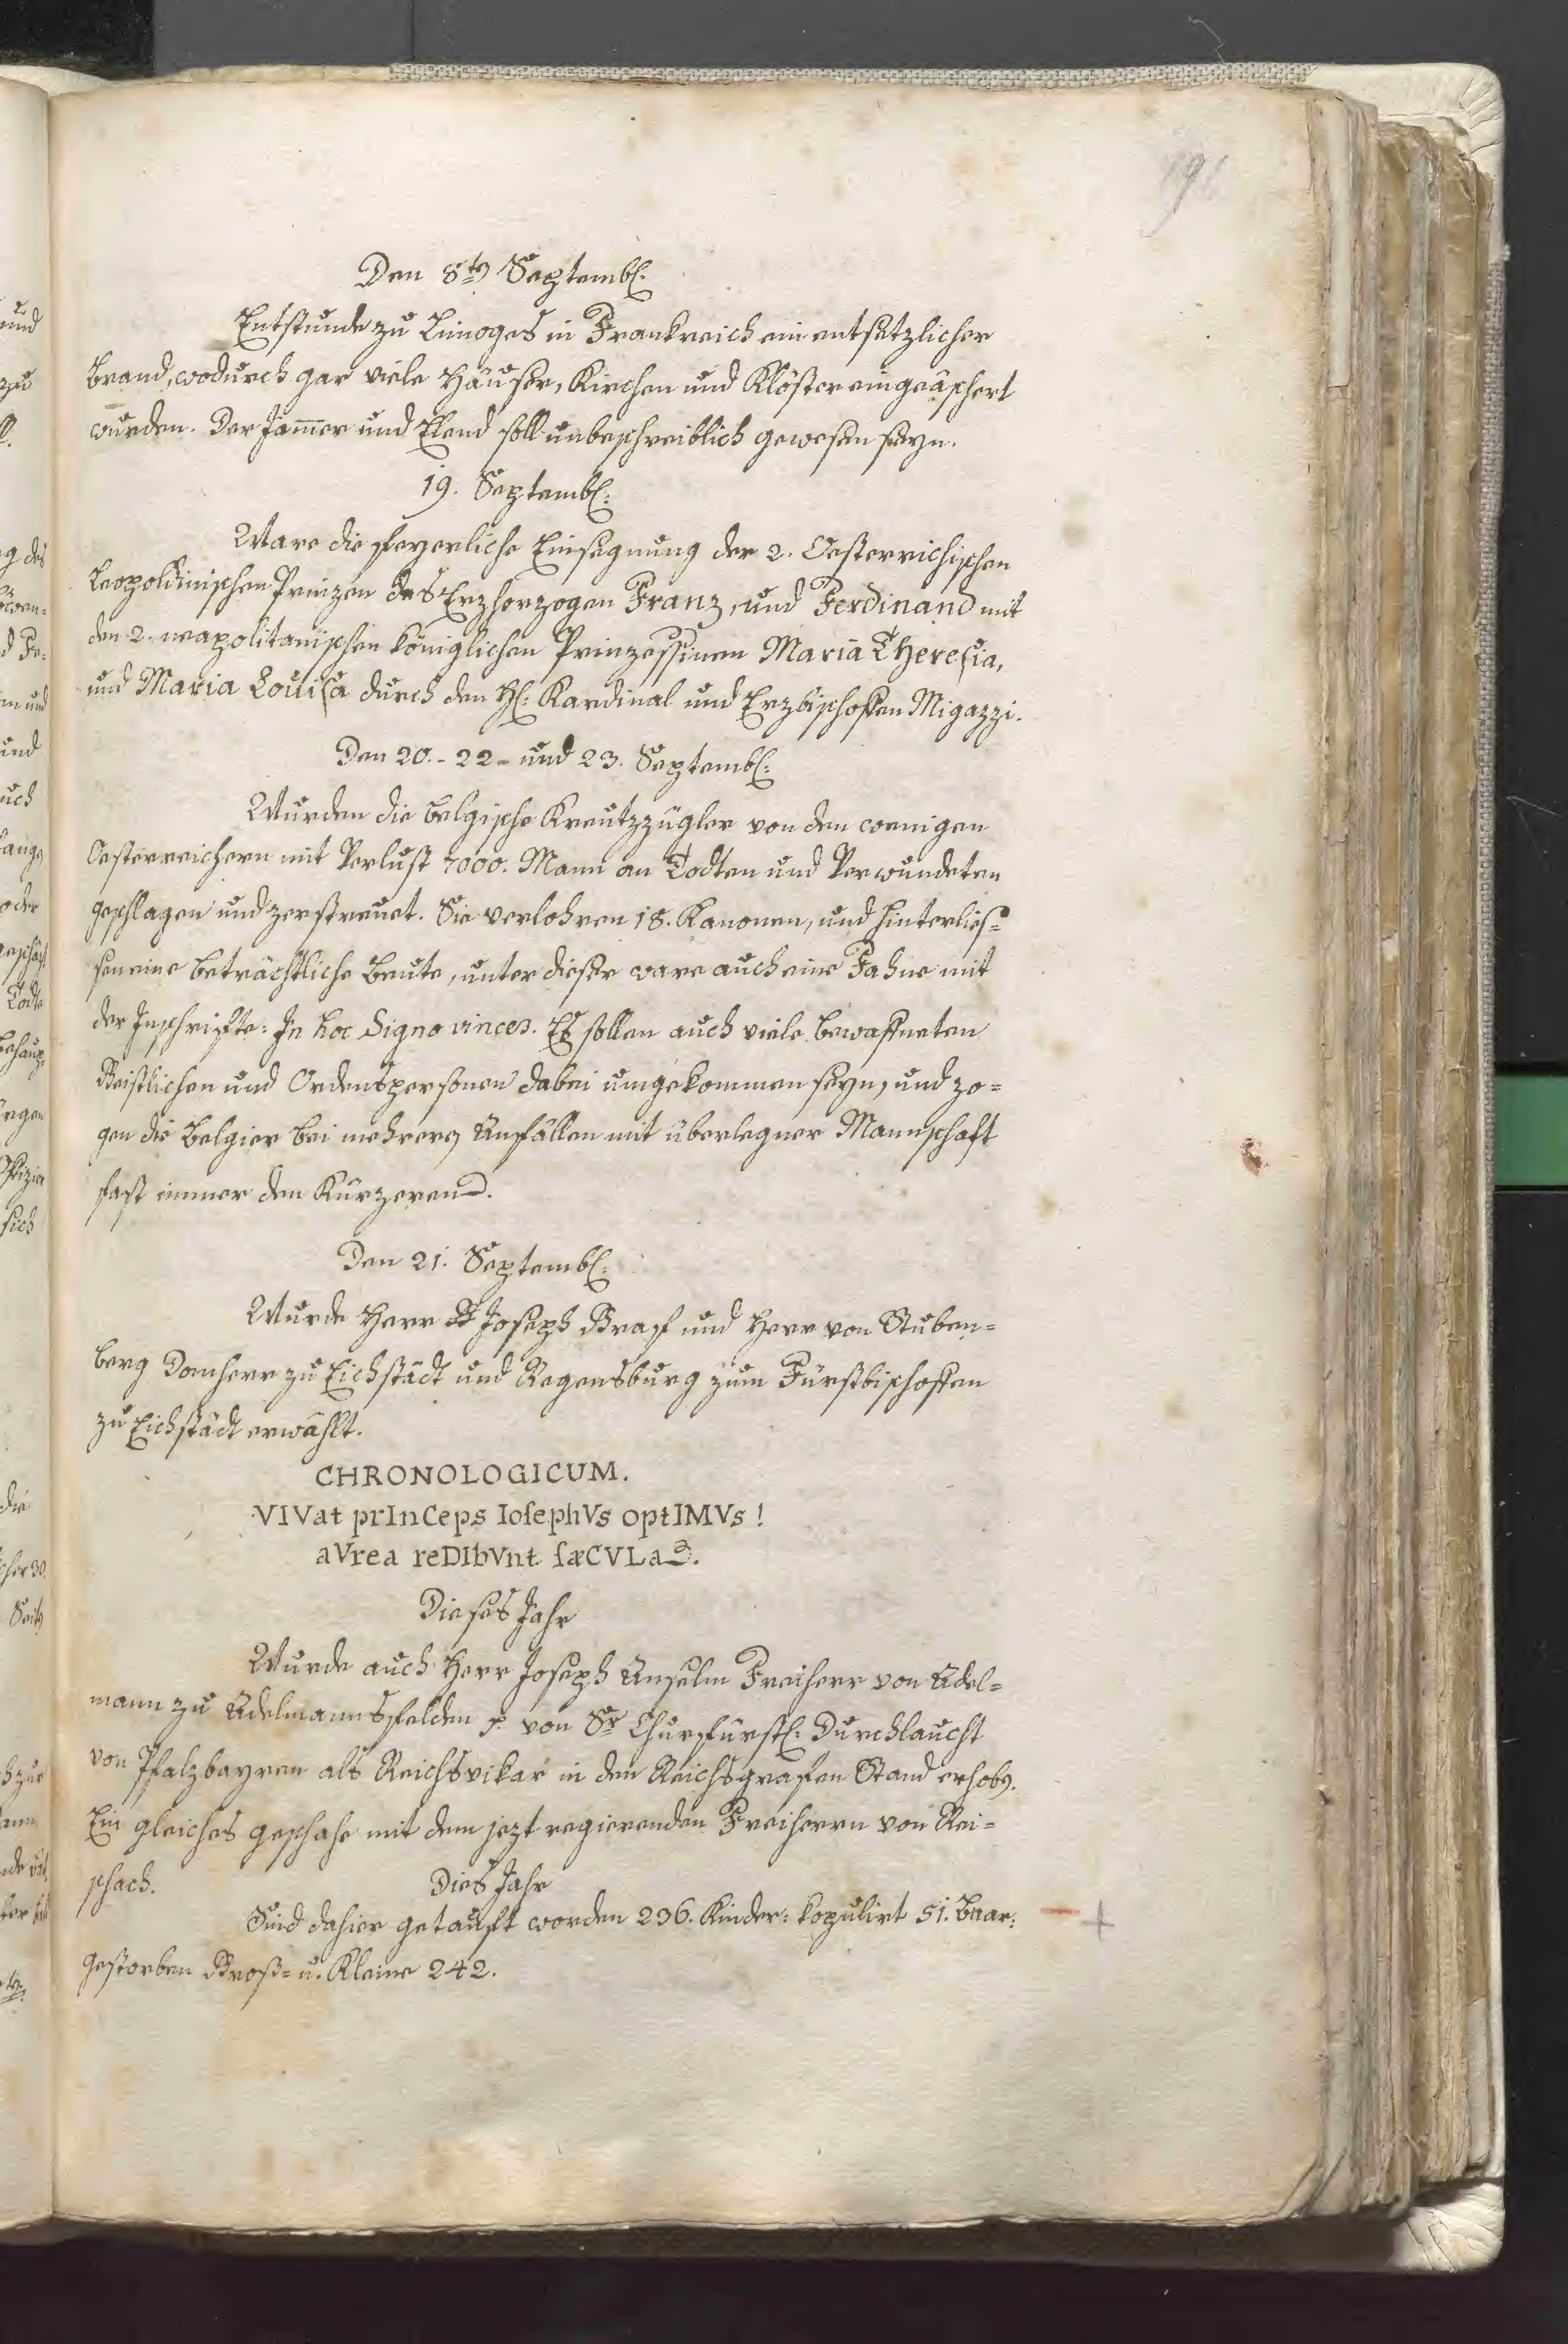 Den 8ten Septembl:
Entstunde zu Limoges in Frankreich ein entsetzlicher
Brand, wodurch gar viele Häuser, Kirchen und Klöster eingeäschert
wurden. Der Jam̄er und Elend soll unbeschreiblich gewesen seyn.
19. Septembl:
Ware die feyerliche Einsegnung der 2. Oesterreichischen
Leopoldinischen Prinzen des Erzherzogen Franz, und Ferdinand mit
den 2. neapolitanischen königlichen Prinzessinen Maria Theresia,
und Maria Louisa durch den Hl: Kardinal und Erzbischoffen Migazzi.
Den 20.- 22- und 23. Septembl:
Wurden die belgische Kreutzzügler von den wenigen
Oesterreichern mit Verlust 7000. Mann an Todten und Verwundeten
geschlagen und zerstreuet. Sie verlohren 18. Kanonen, und hinterlies=
sen eine beträchtliche Beute, unter dieser ware auch eine Fahne mit
der Inschrifte: In hoc Signo vinces. Es sollen auch viele bewaffneten
Geistlichen und Ordenspersonen dabei umgekommen seyn, und zo=
gen die Belgier bei mehrern Anfällen mit überlegner Mannschaft
fast immer den Kürzeren.
Den 21. Septembl:
Wurde Herr Joseph Graf und Herr von Stuben=
berg Domherr zu Eichstädt und Regensburg zum Fürstbischoffen
zu Eichstädt erwählt.
CHRONOLOGICUM.
VIVat prInCeps IosephVs optIMVs!
aVrea reDIbVnt sæCVLa.
Dieses Jahr
Wurde auch Herr Joseph Anselm Freiherr von Adel=
mann zu Adelmannsfelden p. von Sr Churfürstl: Durchlaucht
von Pfalzbayren als Reichsvikar in den Reichsgrafen Stand erhobn.
Ein gleiches geschahe mit dem jezt regierenden Freiherrn von Rei=
schach.
Dies Jahr
Sind dahier getauft worden 236. Kinder: kopulirt 51. Paar:
gestorben Groß= u. Kleine 242.